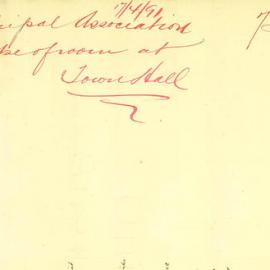 17/4/91
ipal Association
use of room at
Town Hall